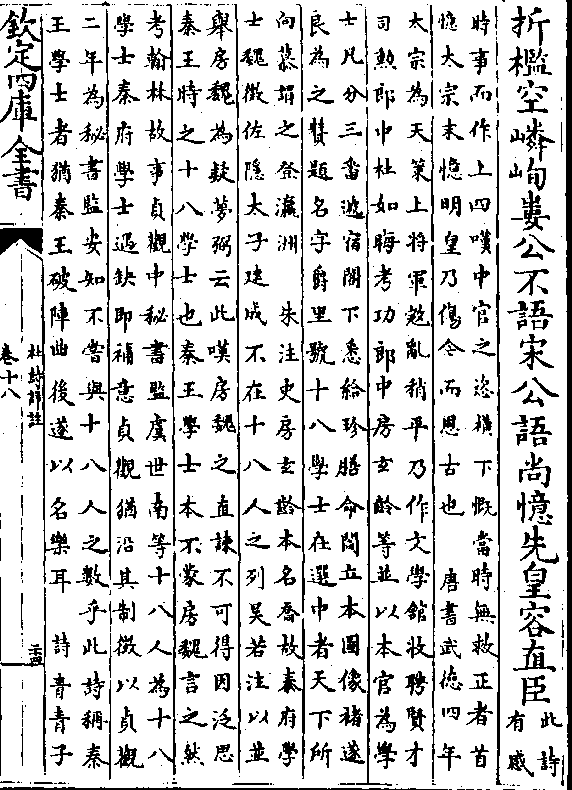 折檻空嶙峋婁公不語宋公語尚憶先皇容直臣此詩
有感
時事而作上四嘆中官之恣横下慨當時無救正者首
憶太宗末憶明皇乃傷今而思古也　唐書武德四年
太宗為天策上將軍冦亂稍平乃作文學館收聘賢才
司勲郎中杜如晦考功郎中房玄齡等並以本官為學
士凡分三畨逓宿閣下悉給珍膳命閻立本圖像褚遂
良為之贊題名字爵里號十八學士在選中者天下所
向慕謂之登瀛洲　朱注史房玄齡本名喬故秦府學
士魏徵佐隐太子建成不在十八人之列吴若注以並
舉房魏為疑夢弼云此嘆房魏之直諫不可得因泛思
秦王時之十八學士也秦王學士本不䝉房魏言之然
考翰林故事貞觀中秘書監虞世南等十八人為十八
學士秦府學士遇缺即補意貞觀猶沿其制徵以貞觀
二年為秘書監安知不嘗與十八人之數乎此詩稱秦
王學士者猶秦王破陣曲後遂以名樂耳　詩青青子
欽定四庫全書
杜詩詳註
卷十八